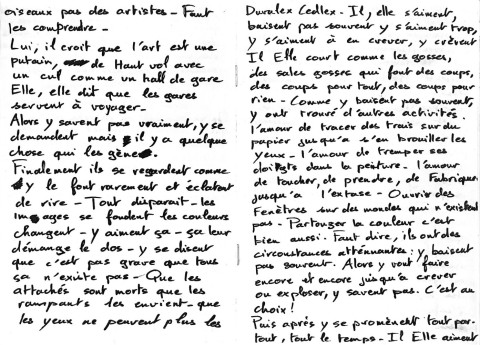 oiseaux pas des artistes - Faut
les comprendre -
Lui, il croit que l'art est une
putain, de Haut vol avec
un cul comme un hall de gare
Elle, elle dit que les gares
servent à voyager -
Alors y savent pas vraiment, y se
demandent mais il y a quelque
chose qui les gène.
Finalement ils se regardent comme
y le font rarement et éclatent
de rire - Tout disparait - les
images se fondent les couleurs
changent - y aiment ça - ça leur
démange le dos - y se disent
que c'est pas grave que tous
ça n'existe pas - Que les
attachés sont morts que les
rampants les envient - que
les yeux ne peuvent plus les
Duralex Cedlex - Il, elle s'aiment,
baisent pas souvent y s'aiment trop,
y s'aiment à en crever, y crèvent
Il Elle court comme les gosses,
des sales gosses qui font des coups,
des coups pour tout, des coups pour
rien - Comme y baisent pas souvent,
y ont trouvé d'autres activités.
l'amour de tracer des trais sur du
papier jusqu'a s'en brouiller les
yeux - l'amour de tremper ses
doigts dans la peinture. l'amour
de toucher, de prendre, de Fabriquer
jusqu'a l'extase - Ouvrir des
Fenêtres sur des mondes qui n'existent
pas - Partouzer la couleur c'est
bien aussi. Faut dire, ils ont des
circonstances atténuantes : y baisent
pas souvent. Alors y vont faire
encore et encore jusqu'a crever
ou exploser, y savent pas. C'est au
choix !
Puis après y se promènent tout par-
tout, tout le temps - Il Elle aiment